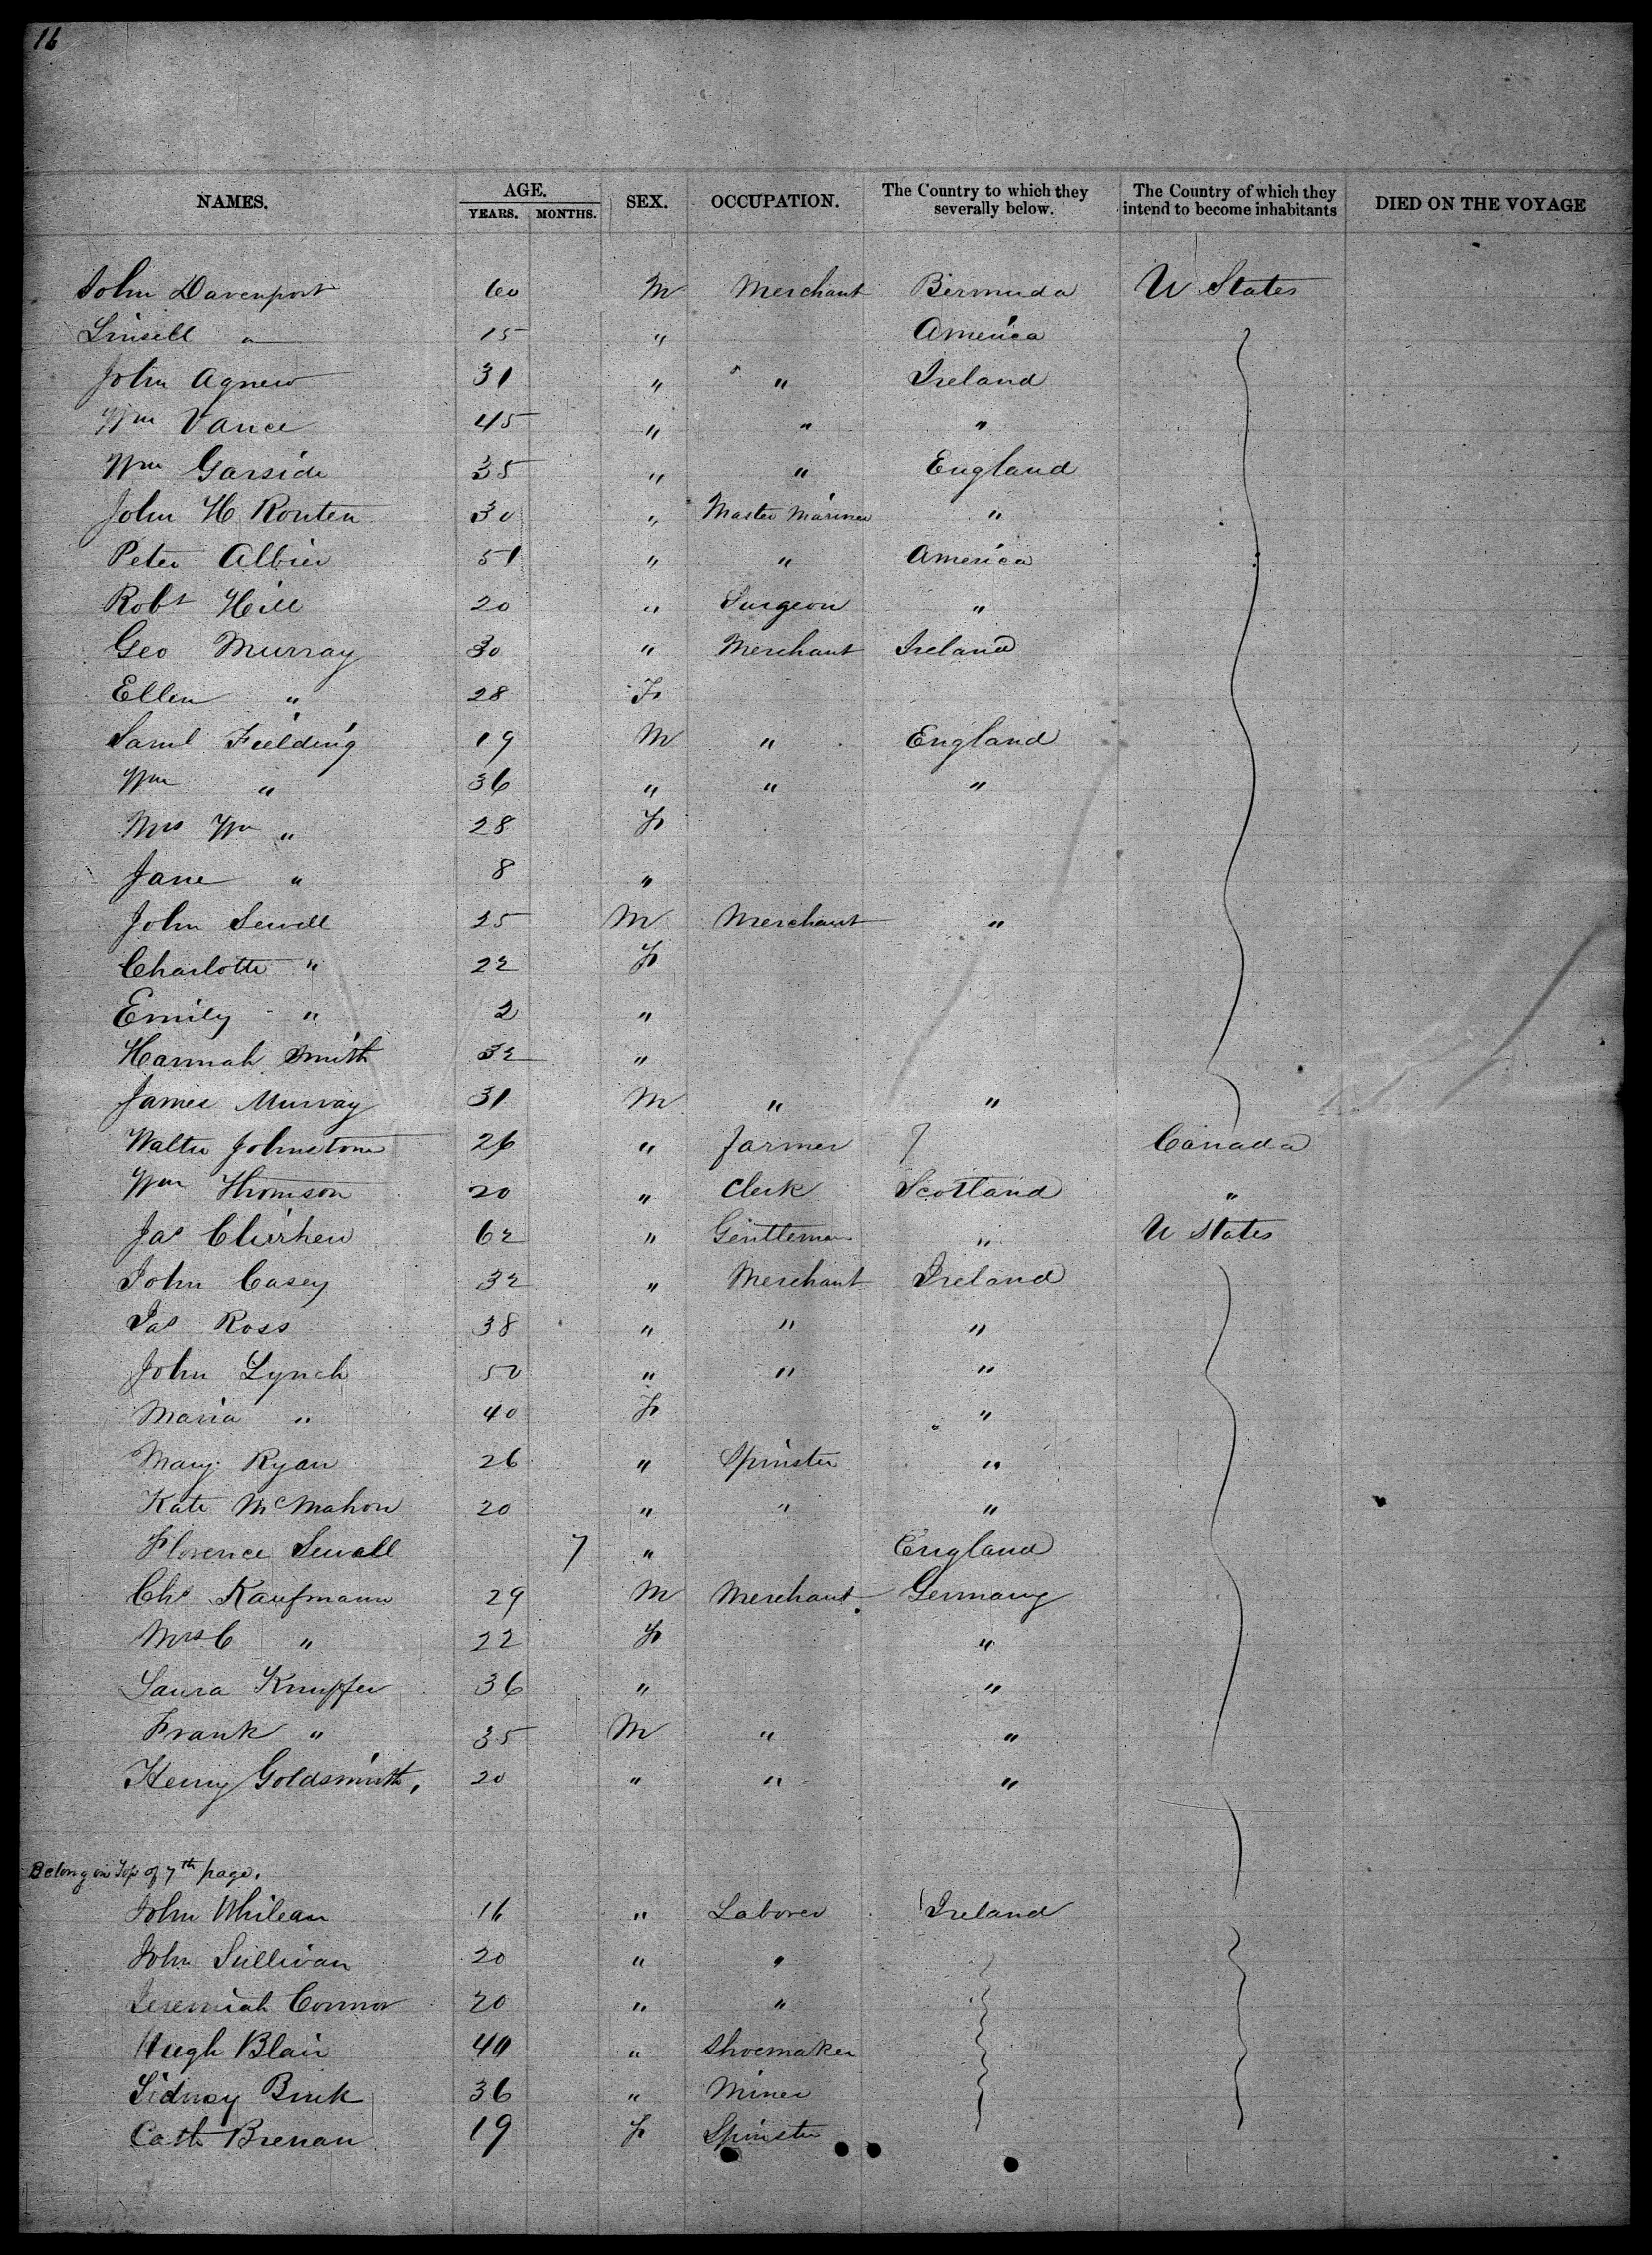 16
NAMES. AGE. YEARS. MONTHS. SEX. OCCUPATION. The Country to which they severally below. The Country of which they intend to become inhabitants DIED ON THE VOYAGE
John Davenport 60 M Merchant Bermuda U States
Linsell " 15 " America
John Agnew 31 " " Ireland
Wm Vance 45 " " "
Wm Garside 35 " " England
John H Routen 30 " Master Mariner "
Peter Albier 51 " " America
Robt Hill 20 " Surgeon "
Geo Murray 30 " Merchant Ireland
Ellen " 28 F
Saml Fielding 19 M " England
Wm " 36 " " "
Mrs Wm " 28 F
Jane " 8 "
John Sewell 25 M Merchant "
Charlotte " 22 F
Emily " 2 "
Hannah Smith 32 "
James Murray 31 M " "
Walter Johnstone 26 " farmer Canada
Wm Thomson 20 " Clerk Scotland "
Jas 62 " Gentleman " U States
John Casey 32 " Merchant Ireland
Jas Ross 38 " " "
John Lynch 50 " " "
Maria " 40 F "
Mary Ryan 26 " Spinster "
Kate McMahon 20 " " "
Florence Sewell 7 " England
Chs Kaufmann 29 M Merchant Germany
Mrs C " 22 F "
Laura Knupfer 36 " "
Frank " 35 M " "
Henry Goldsmith, 20 " " "
Belong on Top of 7th page.
John Whilean 16 " Laborer Ireland
John Sullivan 20 " "
Jeremiah Connor 20 " "
Hugh Blair 40 " Shoemaker
Sidney 36 " Miner
Cath Brenan 19 F Spinster